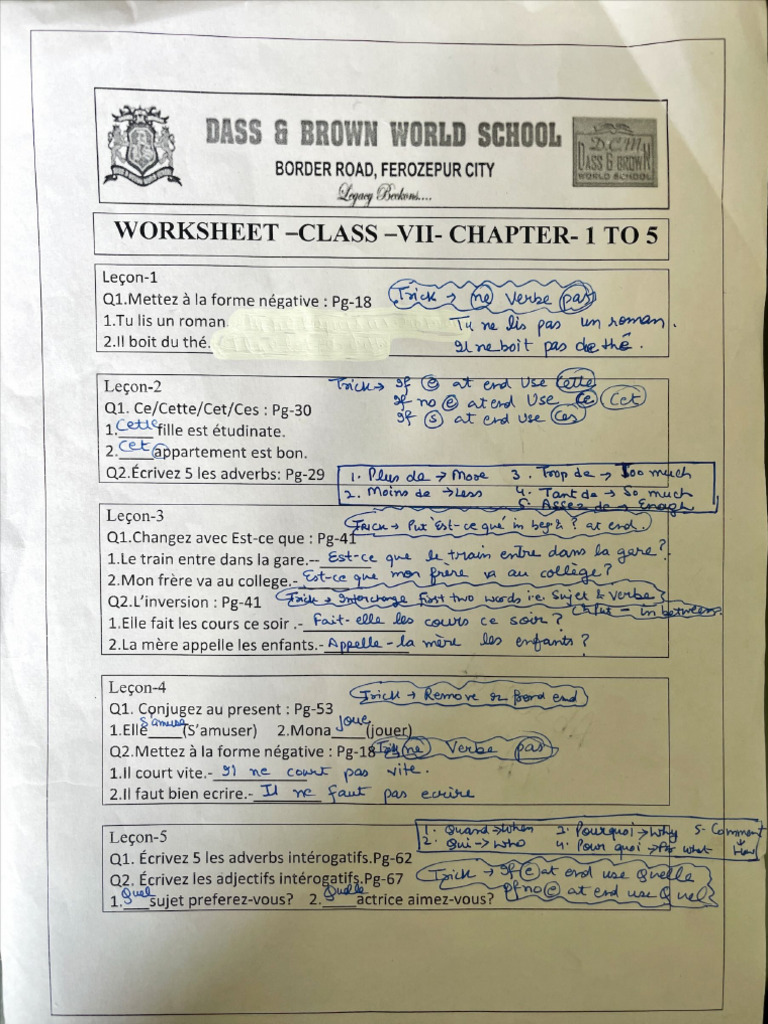 DASS & BROWN WORLD SCHOOL
BORDER ROAD, FEROZEPUR CITY
Legacy Beckons....
D.C.M
DASS & BROWN
WORLD SCHOOL
WORKSHEET –CLASS –VII- CHAPTER- 1 TO 5
Leçon-1
Q1.Mettez à la forme négative : Pg-18 Trick → ne verbe pas
1.Tu lis un roman. Tu ne lis pas un roman.
2.Il boit du thé. Il ne boit pas de thé.
Leçon-2 Trick → If e at end Use Cette
Q1. Ce/Cette/Cet/Ces : Pg-30 If no e at end Use Ce Cet
If s at end use Ces
1. Cette fille est étudinate.
2. Cet appartement est bon.
Q2.Écrivez 5 les adverbs: Pg-29 1. Plus de → More 3. Trop de → Too much
2. Moins de → Less 4. Tant de → So much
5. Assez de → Enogh
Leçon-3 Trick → Put 'Est-ce que' in beg & ? at end.
Q1.Changez avec Est-ce que : Pg-41
1.Le train entre dans la gare.-- Est-ce que le train entre dans la gare?
2.Mon frère va au college.- Est-ce que mon frère va au collège?
Q2.L'inversion : Pg-41 Trick → Interchange First two words i.e. Sujet & Verbe
& Put – in between.
1.Elle fait les cours ce soir .- Fait-elle les cours ce soir?
2.La mère appelle les enfants.- Appelle-la mère les enfants?
Leçon-4 Trick → Remove r from end
Q1. Conjugez au present : Pg-53
1.Elle s'amuse (S'amuser) 2.Mona joue (jouer)
Q2.Mettez à la forme négative : Pg-18 Trick ne Verbe pas
1.Il court vite.- Il ne court pas vite.
2.Il faut bien ecrire.- Il ne faut pas ecrire
Leçon-5 1. Quand → When 3. Pourquoi → Why 5- Comment
2. Qui → Who 4. Pour quoi → For what ↓ How
Q1. Écrivez 5 les adverbs intérogatifs.Pg-62
Q2. Écrivez les adjectifs intérogatifs.Pg-67 Trick → If e at end use Quelle
If no e at end use Quel
1. Quel sujet preferez-vous? 2. Quelle actrice aimez-vous?